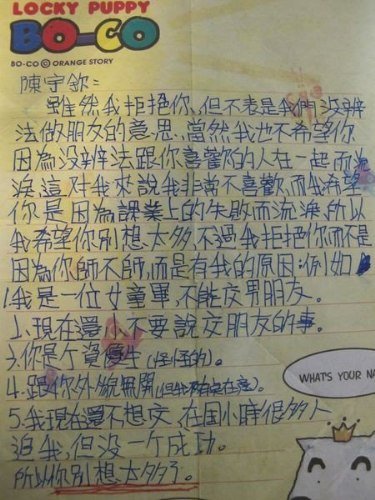 LOCKY PUPPY
BO-CO
BO-CO © ORANGE STORY
陳守欽:
雖然我拒絕你、但不表是我們沒辨
法做朋友的意思、當然我也不希望你
因為沒辨法跟你喜歡的人在一起而流
淚這對我來說我非常不喜歡而我希望
你是因為課業上的失敗而流淚、所以
我希望你別想太多、不過我拒絕你而不是
因為你帥不帥、而是有我的原因:例如
1.我是一位女童軍、不能交男朋友。
2.現在還小不要說交朋友的事。
3.你是个資優生(怪怪的)。
4.跟你外貌無關(但我不在意)。
5.我現在還不想交、在国小時很多人
追我、但没一个成功。
所以你別想太多了。
WHAT'S YOUR NA